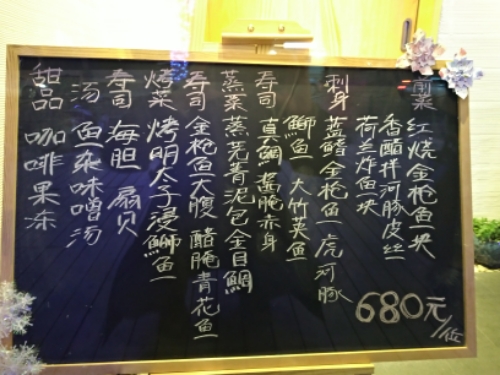 前菜 红烧金枪鱼一块
香醋拌河豚皮丝
荷兰炸鱼一块
刺身 蓝鳍金枪鱼 虎河豚
鰤鱼 大竹夹鱼
寿司 真鲷 酱腌赤身
蒸菜 蒸芜青泥包金目鲷
寿司 金枪鱼大腹 醋腌青花鱼
烤菜 烤明太子浸鰤鱼
寿司 海胆 扇贝
汤 鱼杂味噌汤
甜品 咖啡果冻
680元/位